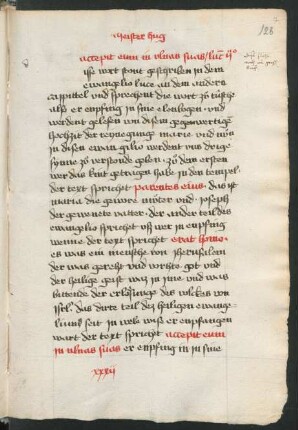 128
meister hug
accepit eum in vlnas suas / luc ii°
ise wort stont geschriben in dem
ewangelio luce an dem andern
cappittel und sprechent die wort zů tútsche
also er enpfing in sine elenbogen · und
werdent gelesen von disem gegenwertigē
hochzit der reinegunge marie und wis
in disem ewangilio werdent uns drige
sinne zů verstonde geben · zů dem ersten
wer das kint getragen habe in den tempel ·
der text spricht parentes eius · das ist
maria die gewore můter und · joseph
der gewonete vatter · der ander teil des
ewangelio spricht uff wer in enpfing
wenne der text spricht erat homo ·
es was ein mensche von jherusalem
der was gereht und vorhte got und
der heilige geist was in ime und was
bittende der erlösunge des volckes von
isrl · das dirte teil des heiligen ewange
lium seit in wele wise er enpfangen
wart der text spricht accepit eum
in vlnas suas er enpfing in in sine
xxxii